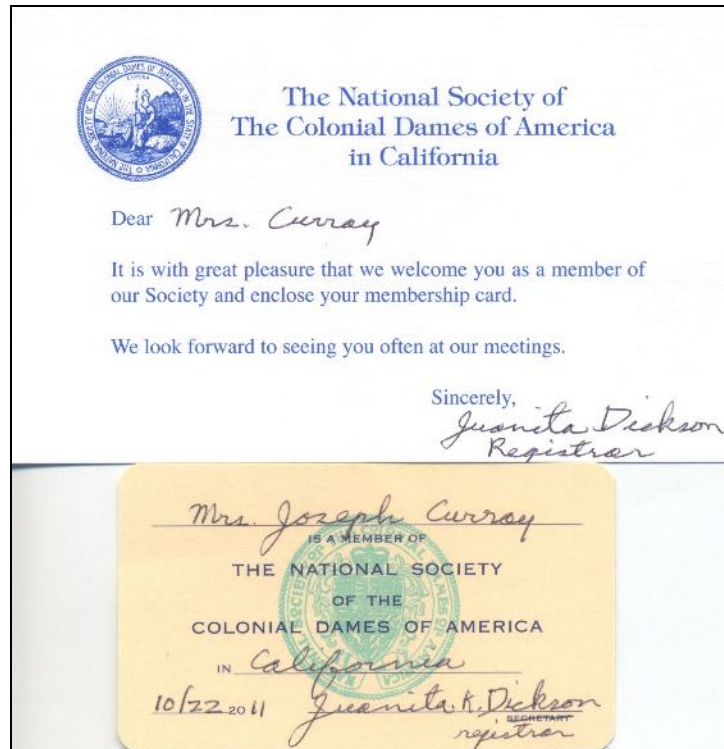 THE NATIONAL SOCIETY OF THE COLONIAL DAMES OF AMERICA IN THE STATE OF CALIFORNIA
EUREKA
The National Society of
The Colonial Dames of America
in California
Dear Mrs. Curray
It is with great pleasure that we welcome you as a member of
our Society and enclose your membership card.
We look forward to seeing you often at our meetings.
Sincerely,
Juanita Dickson
Registrar
Mrs. Joseph Curray
IS A MEMBER OF
THE NATIONAL SOCIETY
OF THE
COLONIAL DAMES OF AMERICA
IN California
10/22 2011 Juanita K. Dickson
SECRETARY
registrar